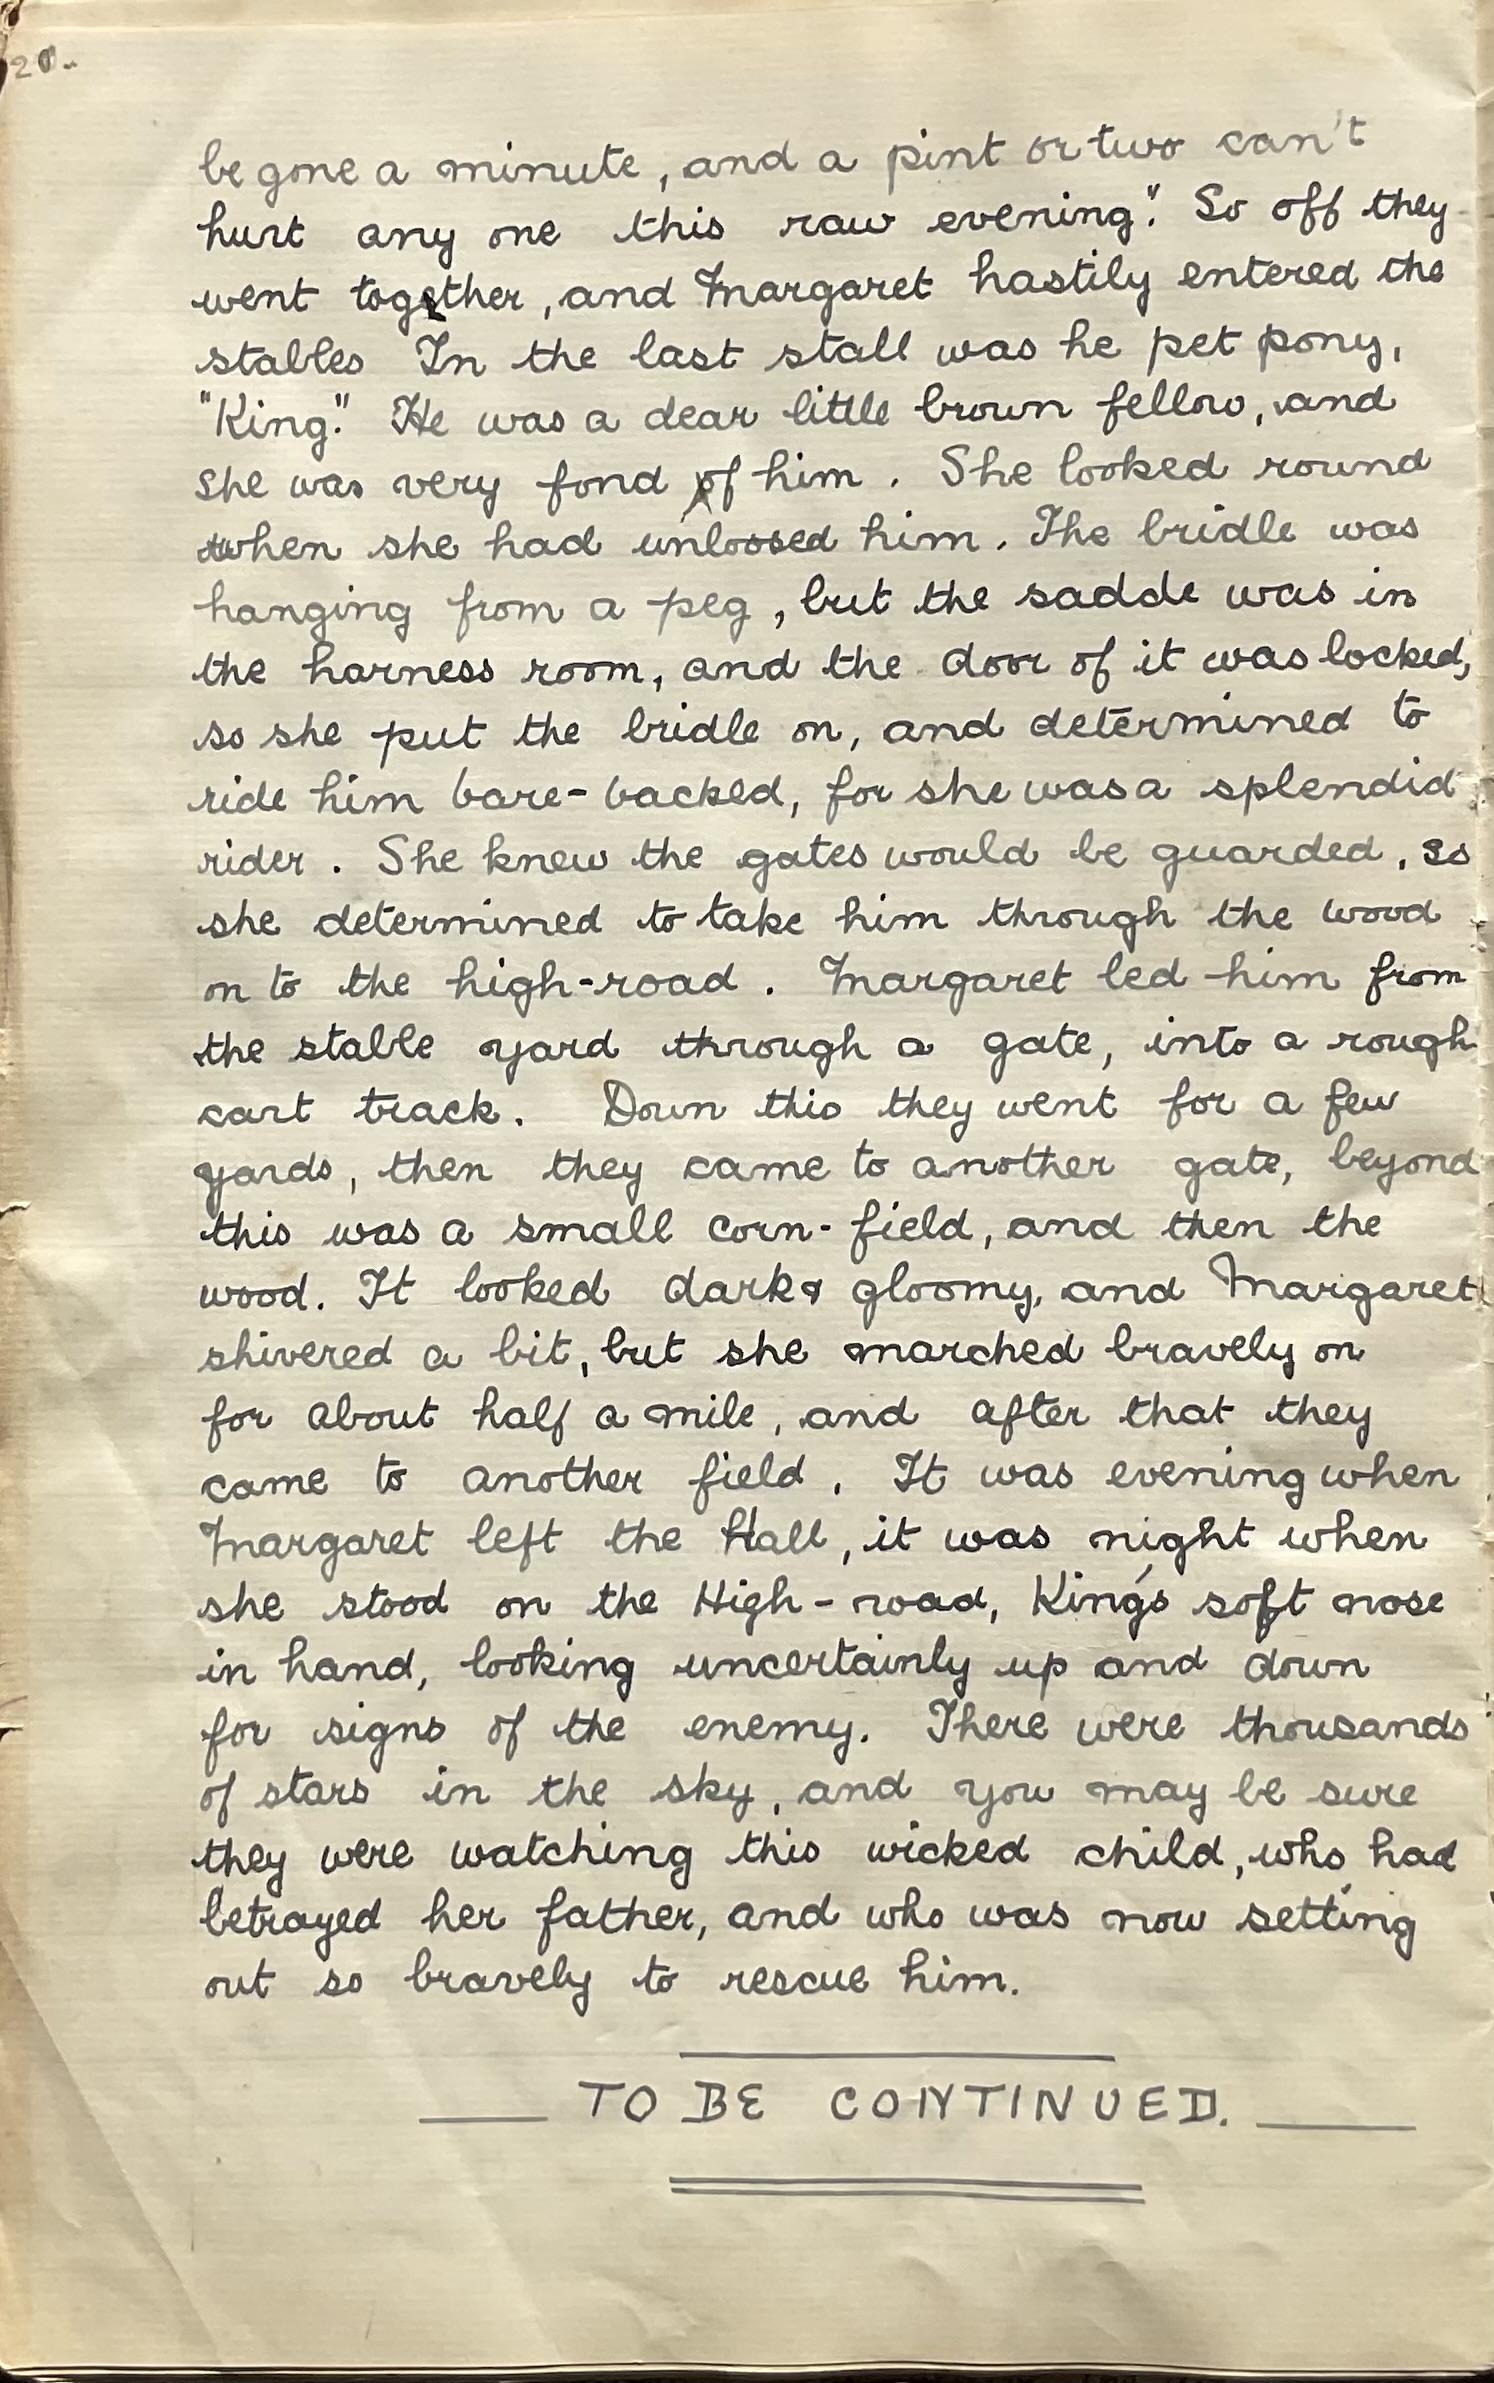 20.
be gone a minute, and a pint or two can't
hurt any one this raw evening". So off they
went together, and Margaret hastily entered the
stables In the last stall was he pet pony,
"King". He was a dear little brown fellow, and
she was very fond of him. She looked round
when she had unloosed him. The bridle was
hanging from a peg, but the sadde was in
the harness room, and the door of it was locked,
so she put the bridle on, and determined to
ride him bare-backed, for she was a splendid
rider. She knew the gates would be guarded, so
she determined to take him through the wood
on to the high-road. Margaret led him from
the stable yard through a gate, into a rough
cart track. Down this they went for a few
yards, then they came to another gate, beyond
this was a small corn-field, and then the
wood. It looked dark & gloomy, and Margaret
shivered a bit, but she marched bravely on
for about half a mile, and after that they
came to another field. It was evening when
Margaret left the Hall, it was night when
she stood on the High-road, King's soft nose
in hand, looking uncertainly up and down
for signs of the enemy. There were thousands
of stars in the sky, and you may be sure
they were watching this wicked child, who had
betrayed her father, and who was now setting
out so bravely to rescue him.
TO BE CONTINUED.